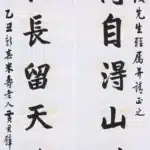 先生雅屬并請正之
自得山
長留天
乙丑新喜米壽老人黃君璧